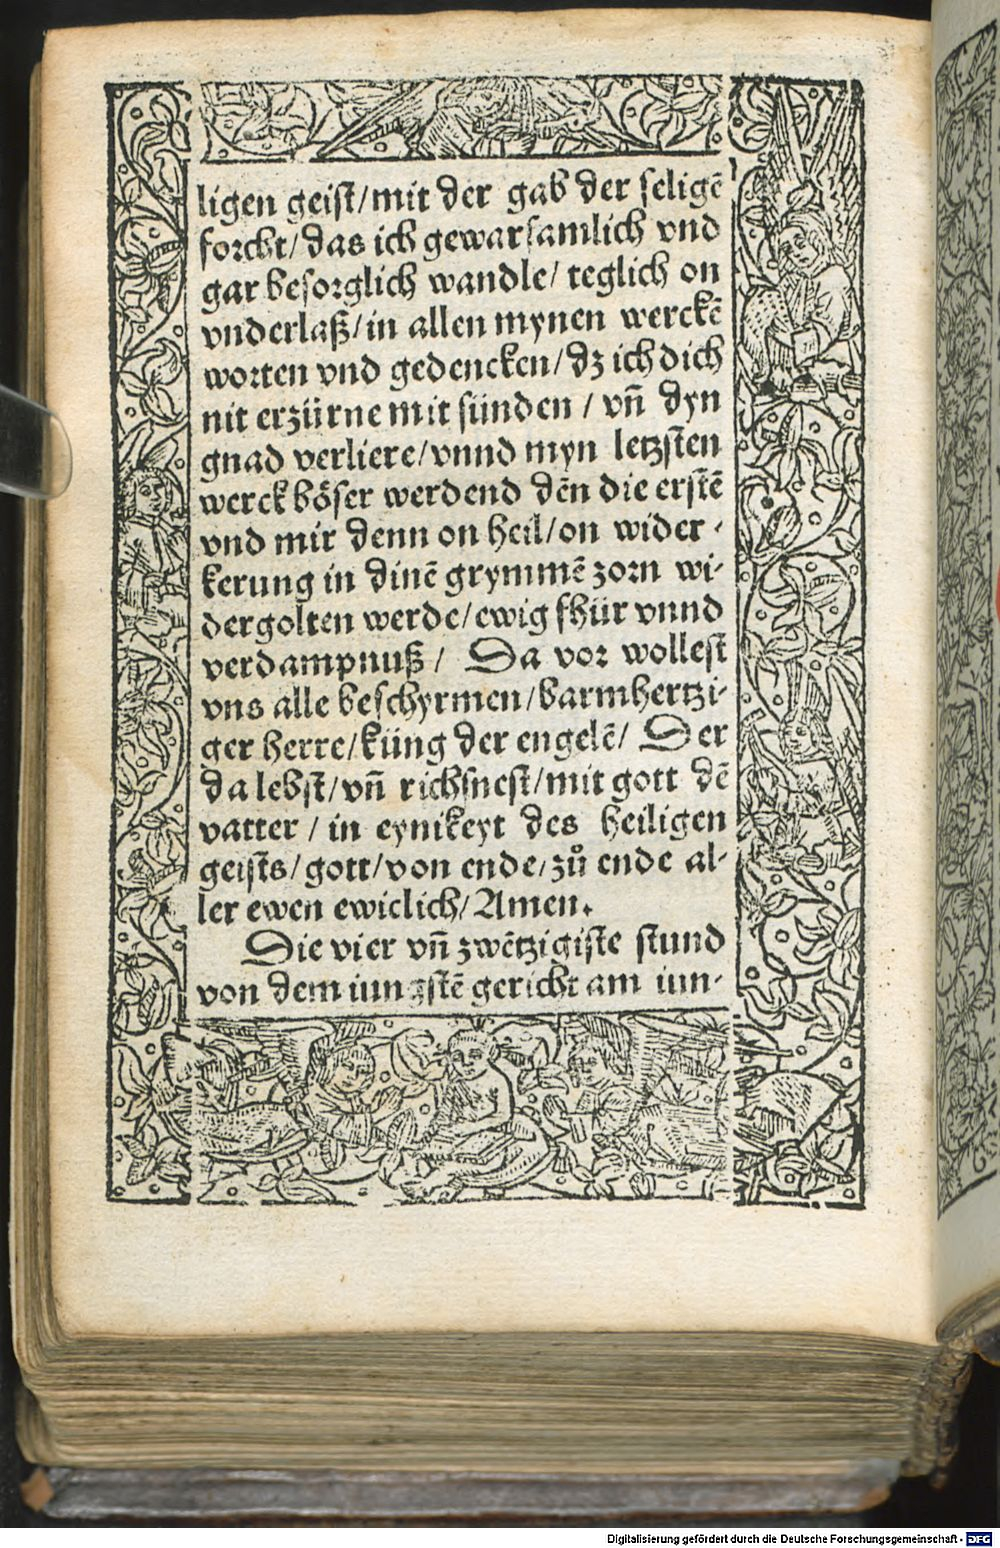 ligen geist/mit der gab der seligē
forcht/das ich gewarsamlich vnd
gar besorglich wandle/ teglich on
vnderlaß/in allen mynen werckē
worten vnd gedencken/dz ich dich
nit erzürne mit sünden / vn̄ dyn
gnad verliere/vnnd myn letzsten
werck böser werdend dēn die erstē
vnd mir denn on heil/on wider-
kerung in dinē grymmē zorn wi-
dergolten werde/ewig fhür vnnd
verdampnuß/ Da vor wollest
vns alle beschyrmen/barmhertzi-
ger herre/küng der engelē/ Der
da lebst/vn̄ richsnest/mit gott dē
vatter / in eynikeyt des heiligen
geists/gott/von ende/zů ende al-
ler ewen ewiclich/Amen.
Die vier vn̄ zwētzigiste stund
von dem iungstē gericht am iun-
Digitalisierung gefördert durch die Deutsche Forschungsgemeinschaft - DFG